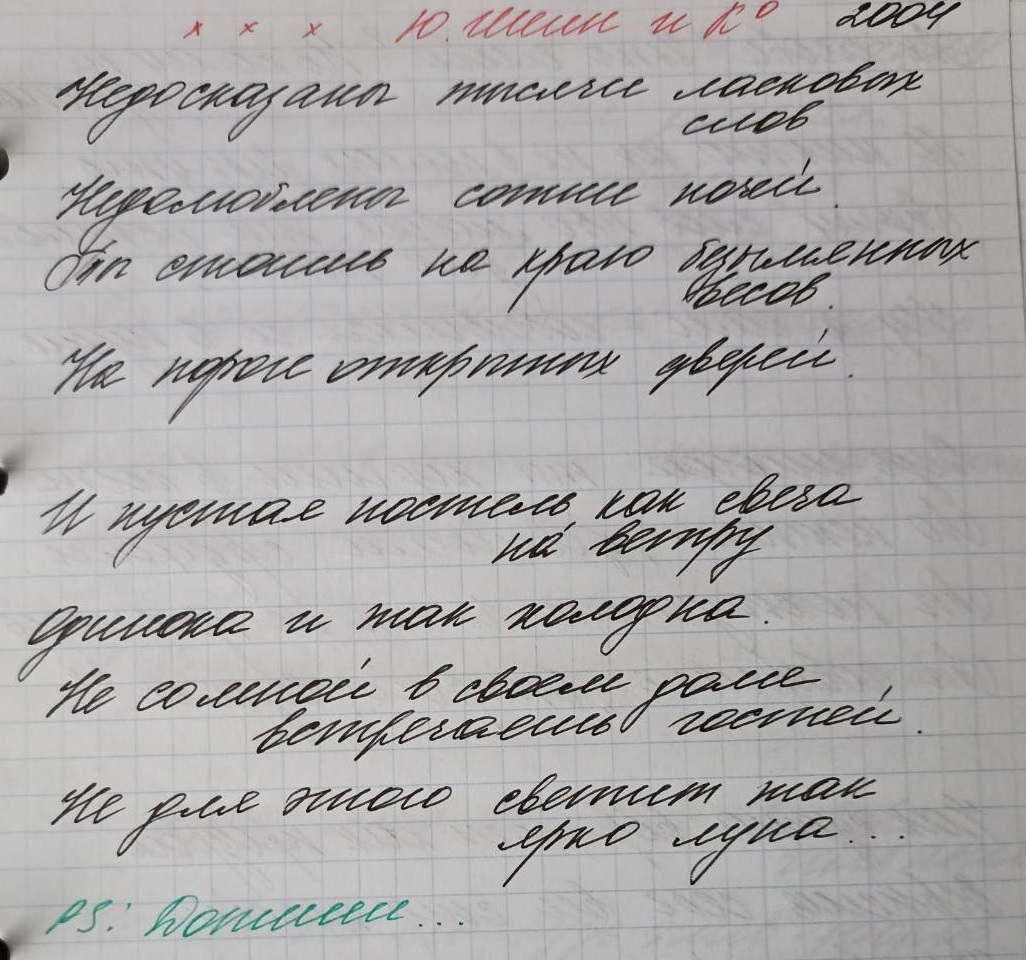 × × × Ю. Шин и К° 2004
Недосказаны тысячи ласковых
слов
Недолюблены сотни ночей.
Ты стоишь на краю безымянных
весов.
На пороге открытых дверей.
И пустая постель как свеча
на ветру
Одинока и так холодна.
Не со мной в своем доме
встречаешь гостей.
Не для этого светит так
ярко луна...
PS: Допиши...